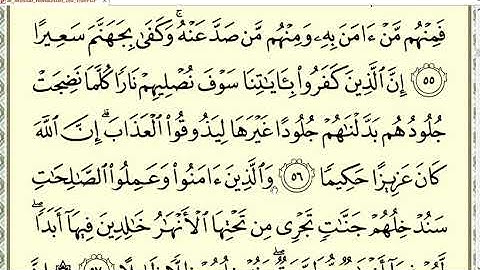 فَمِنْهُم مَّنْ ءَامَنَ بِهِۦ وَمِنْهُم مَّن صَدَّ عَنْهُ ۚ وَكَفَىٰ بِجَهَنَّمَ سَعِيرًا
٥٥ إِنَّ ٱلَّذِينَ كَفَرُوا۟ بِـَٔايَـٰتِنَا سَوْفَ نُصْلِيهِمْ نَارًا كُلَّمَا نَضِجَتْ
جُلُودُهُم بَدَّلْنَـٰهُمْ جُلُودًا غَيْرَهَا لِيَذُوقُوا۟ ٱلْعَذَابَ ۗ إِنَّ ٱللَّهَ
كَانَ عَزِيزًا حَكِيمًا ٥٦ وَٱلَّذِينَ ءَامَنُوا۟ وَعَمِلُوا۟ ٱلصَّـٰلِحَـٰتِ
سَنُدْخِلُهُمْ جَنَّـٰتٍ تَجْرِى مِن تَحْتِهَا ٱلْأَنْهَـٰرُ خَـٰلِدِينَ فِيهَآ أَبَدًا ۖ